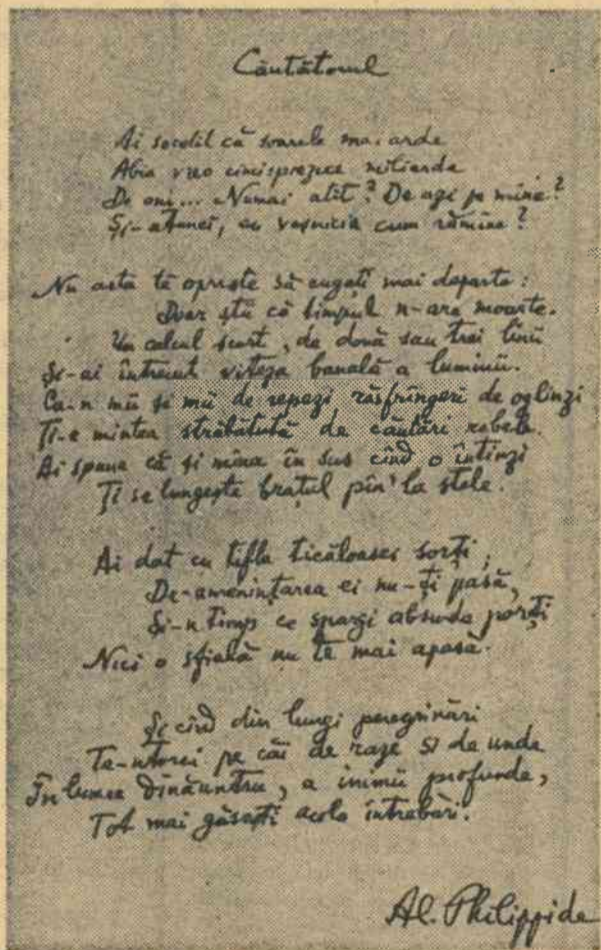 Căutătorul
Ai socotit că soarele mai arde
Abia vreo cincisprezece miliarde
De ani... Numai atît? De azi pe mîine?
Și-atunci, cu veșnicia cum rămîne?
Nu asta te oprește să cugeți mai departe:
Doar știi că timpul n-are moarte.
Un calcul scurt, de două sau trei linii
Și-ai întrecut viteza banală a luminii.
Ca-n mii și mii de repezi răsfrîngeri de oglinzi
Ți-e mintea străbătută de căutări rebele.
Ai spune că și mîna în sus cînd o întinzi
Ți se lungește brațul pîn' la stele.
Ai dat cu tifla ticăloasei sorți,
De-amenințarea ei nu-ți pasă,
Și-n timp ce spargi absurde porți
Nici o sfială nu te mai apasă.
Și cînd din lungi peregrinări
Te-ntorci pe căi de raze și de unde
În lumea dinăuntru, a inimii profunde,
Tot mai găsești acolo întrebări.
Al. Philippide